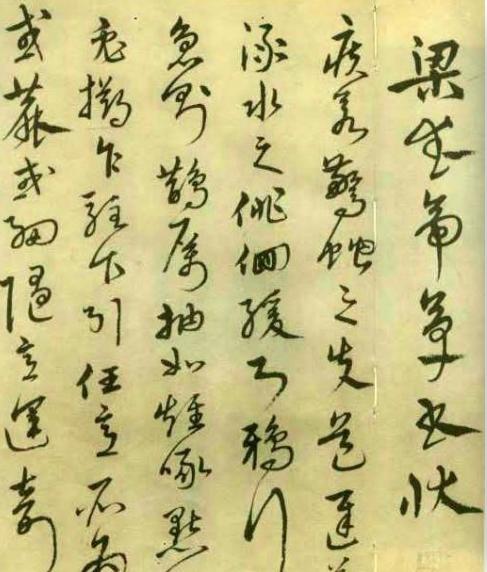 梁武帝草書狀
疾若驚蛇之失道遲若
淥水之徘徊緩則鴉行
急則鵲厲抽如雉啄點
兔擲乍駐乍引任意所為
或麁或細隨意運奇